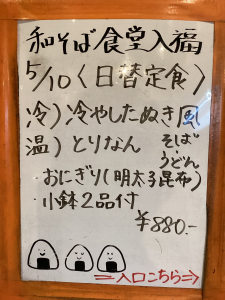 和そば食堂入福
5/10〈日替定食〉
冷）冷やしたぬき風
温）とりなん
そば
うどん
おにぎり（明太子昆布）
小鉢2品付
￥880.-
⇒入口こちら⇒